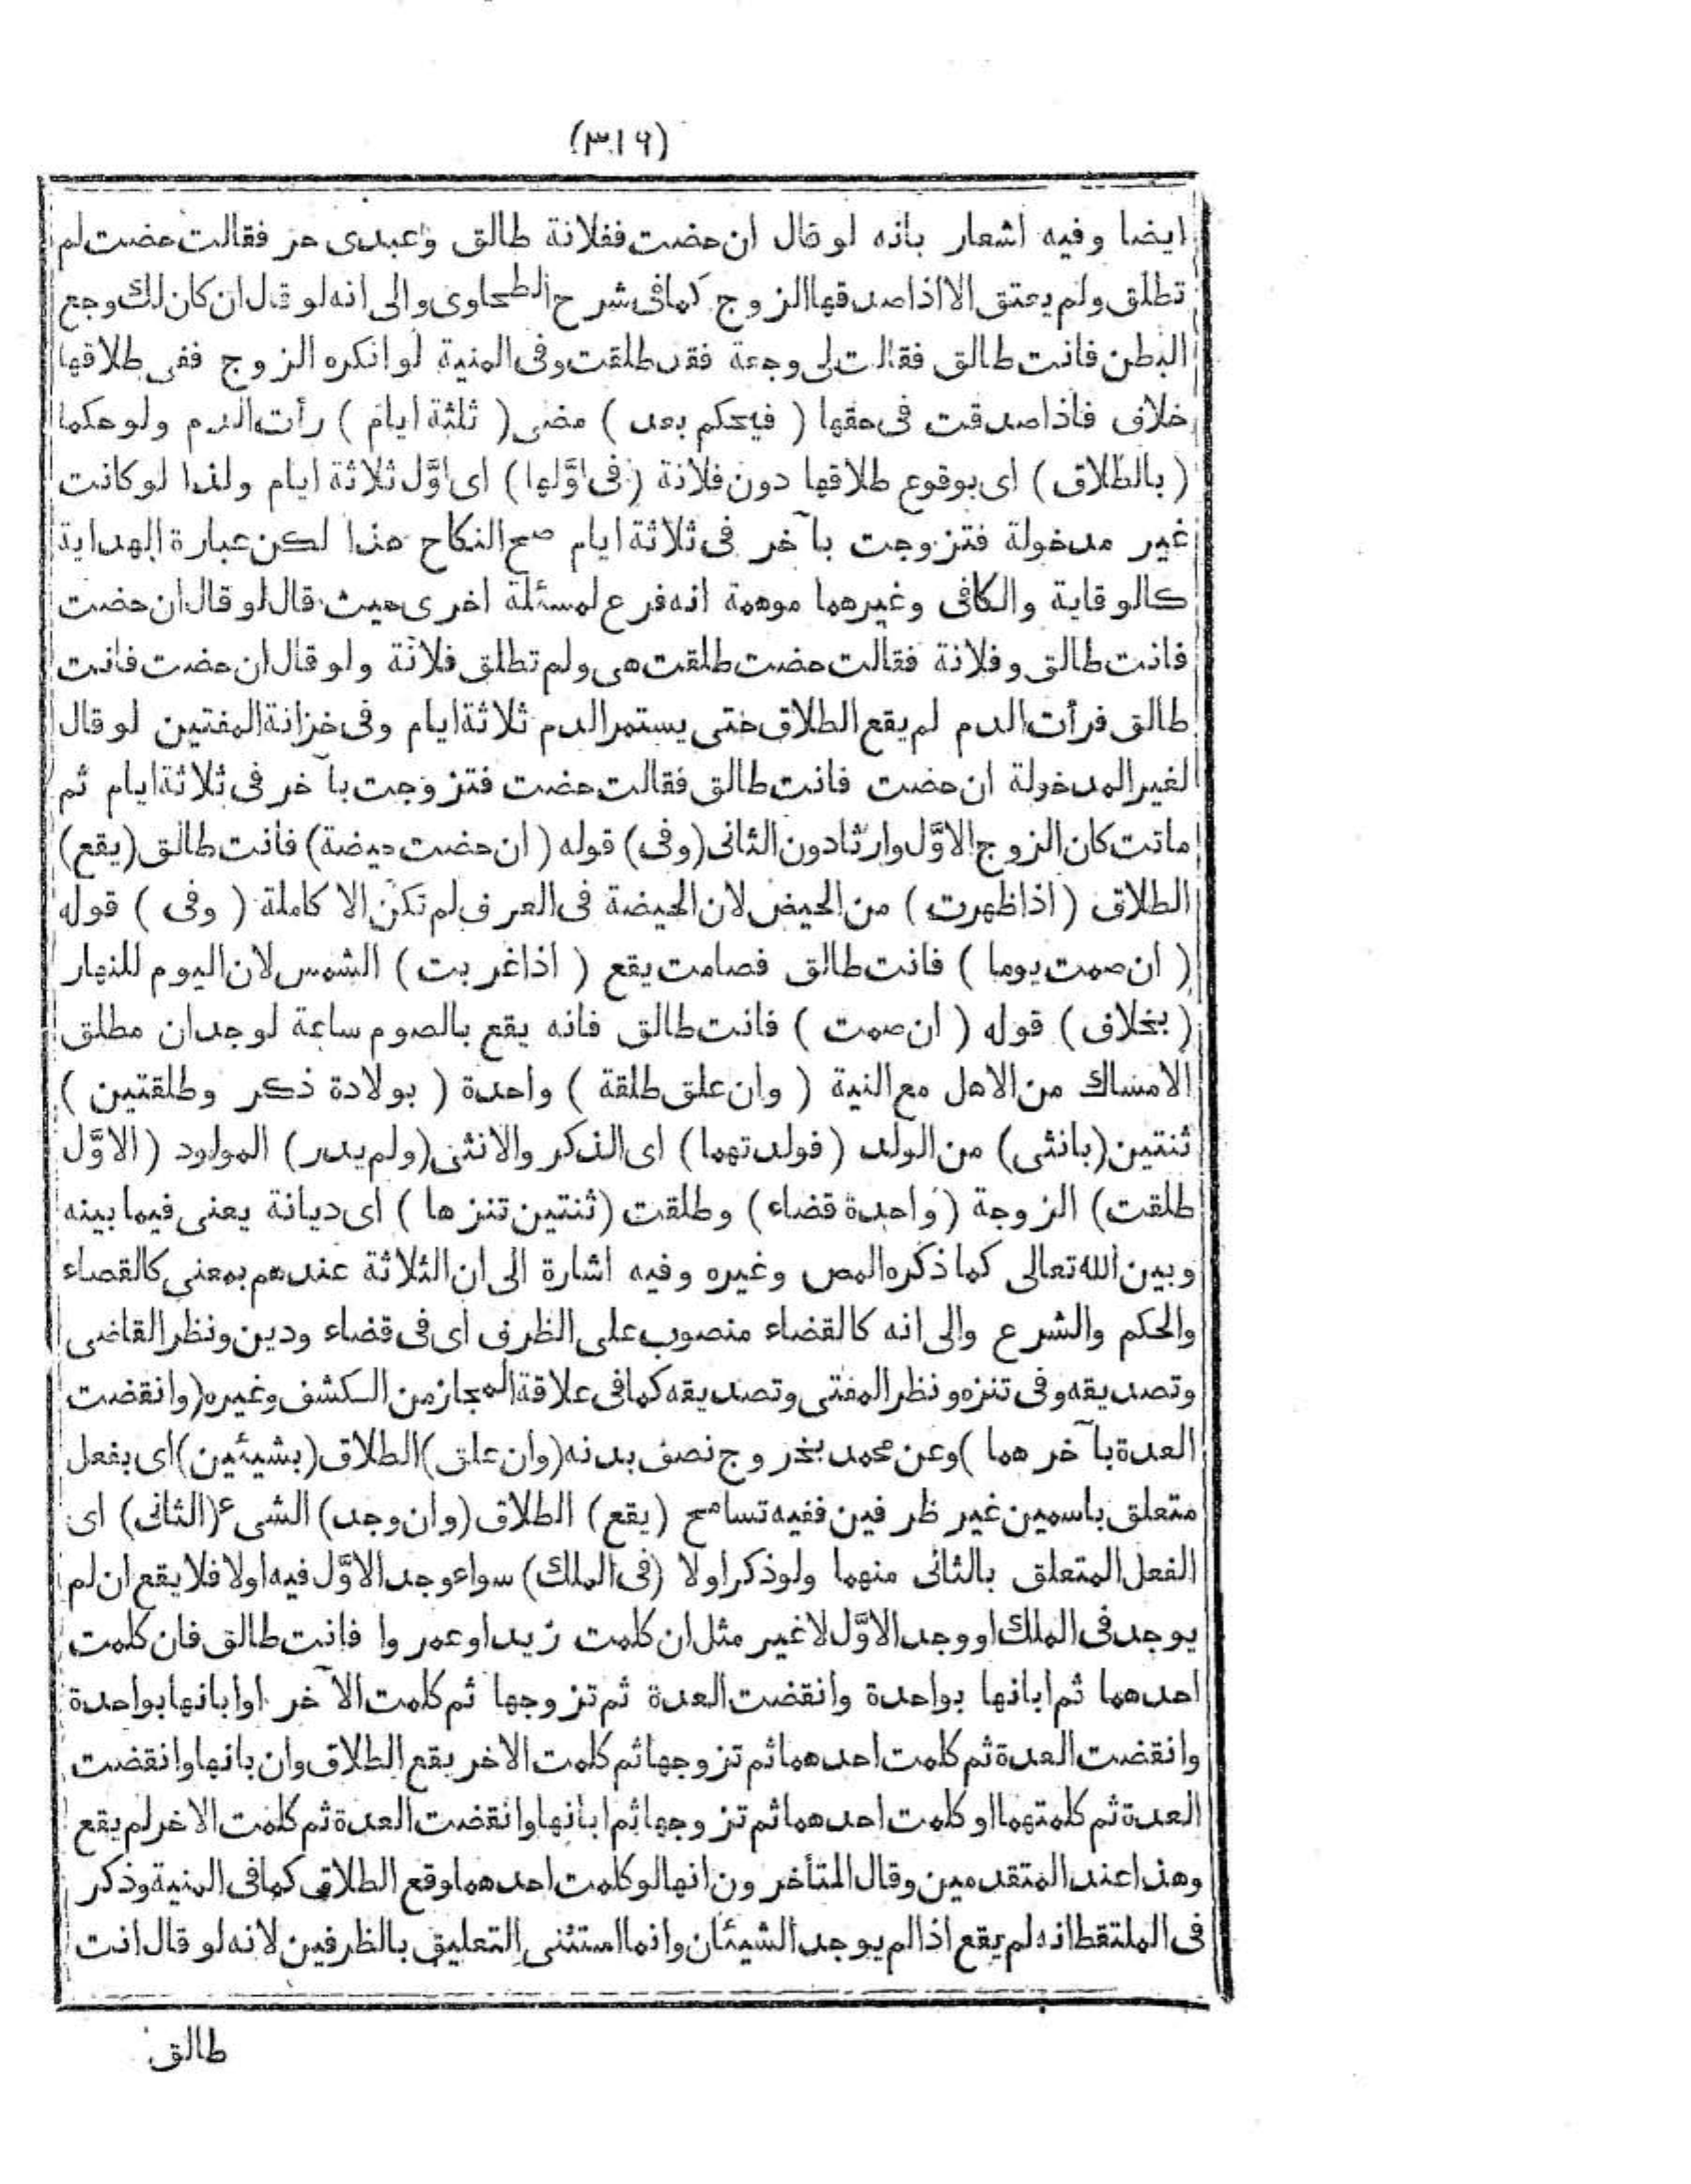 (٣١٦)
ايضا وفيه اشعار بانه لو قال ان حضت ففلانة طالق وعبدى حر فقالت حضت لم
تطلق ولم يعتق الا اذا صدقها الزوج كما فى شرح الطحاوى والى انه لو قال ان كان لك وجع
البطن فانت طالق فقالت لى وجعة فقد طلقت وفى المنية لو انكره الزوج ففى طلاقها
خلاف فاذا صدقت فى حقها ( فيحكم بعد ) مضى ( ثلثة ايام ) رأت الدم ولو حكما
( بالطلاق ) اى بوقوع طلاقها دون فلانة ( فى اوَّلها ) اى اوَّل ثلاثة ايام ولذا لو كانت
غير مدخولة فتزوجت بآخر فى ثلاثة ايام صح النكاح هذا لكن عبارة الهداية
كالوقاية والكافى وغيرهما موهمة انه فرع لمسئلة اخرى حيث قال لو قال ان حضت
فانت طالق وفلانة فقالت حضت طلقت هى ولم تطلق فلانة ولو قال ان حضت فانت
طالق فرأت الدم لم يقع الطلاق حتى يستمر الدم ثلاثة ايام وفى خزانة المفتين لو قال
لغير المدخولة ان حضت فانت طالق فقالت حضت فتزوجت بآخر فى ثلاثة ايام ثم
ماتت كان الزوج الاوَّل وارثا دون الثانى (وفى) قوله ( ان حضت حيضة) فانت طالق (يقع)
الطلاق ( اذا ظهرت ) من الحيض لان الحيضة فى العرف لم تكن الا كاملة ( وفى ) قوله
( ان صمت يوما ) فانت طالق فصامت يقع ( اذا غربت ) الشمس لان اليوم للنهار
( بخلاف ) قوله ( ان صمت ) فانت طالق فانه يقع بالصوم ساعة لوجدان مطلق
الامساك من الاهل مع النية ( وان علق طلقة ) واحدة ( بولادة ذكر وطلقتين )
ثنتين (بانثى) من الولد ( فولدتهما ) اى الذكر والانثى (ولم يدر) المولود ( الاوَّل
طلقت) الزوجة ( واحدة قضاء) وطلقت (ثنتين تنزها ) اى ديانة يعنى فيما بينه
وبين الله تعالى كما ذكره المص وغيره وفيه اشارة الى ان الثلاثة عندهم بمعنى كالقصاء
والحكم والشرع والى انه كالقضاء منصوب على الظرف اى فى قضاء ودين ونظر القاضى
وتصديقه وفى تنزه ونظر المفتى وتصديقه كما فى علاقة المجاز من الكشف وغيره (وانقضت
العدة بآخرهما )وعن محمد بخروج نصف بدنه (وان علق) الطلاق (بشيئين) اى بفعل
متعلق باسمين غير ظرفين ففيه تسامح (يقع) الطلاق (وان وجد) الشىء (الثانى) اى
الفعل المتعلق بالثانى منهما ولو ذكر اولا (فى الملك) سواء وجد الاوَّل فيه اولا فلا يقع ان لم
يوجد فى الملك او وجد الاوَّل لا غير مثل ان كلمت زيدا وعمروا فانت طالق فان كلمت
احدهما ثم ابانها بواحدة وانقضت العدة ثم تزوجها ثم كلمت الآخر او ابانها بواحدة
وانقضت العدة ثم كلمت احدهما ثم تزوجها ثم كلمت الاخر يقع الطلاق وان بانها وانقضت
العدة ثم كلمتهما او كلمت احدهما ثم تزوجها ثم ابانها وانقضت العدة ثم كلمت الاخر لم يقع
وهذا عند المتقدمين وقال المتأخرون انها لو كلمت احدهما وقع الطلاق كما فى المنية وذكر
فى الملتقط انه لم يقع اذا لم يوجد الشيئان وانما استثنى التعليق بالظرفين لانه لو قال انت
طالق